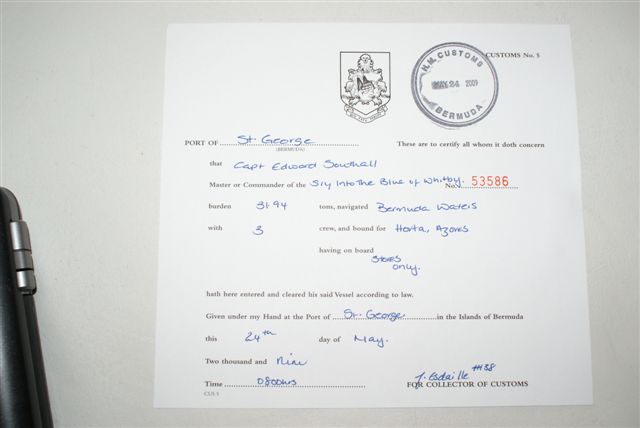 CUSTOMS No. 5
H.M. CUSTOMS
MAY 24 2009
BERMUDA
PORT OF St. George
(BERMUDA)
These are to certify all whom it doth concern
that Capt Edward Southall
Master or Commander of the S/y Into The Blue of Whitby. No. 53586
burden 31.94 tons, navigated Bermuda Waters
with 3 crew, and bound for Horta, Azores
having on board
stores
only.
hath here entered and cleared his said Vessel according to law.
Given under my Hand at the Port of St. George in the Islands of Bermuda
this 24th day of May.
Two thousand and Nine
Time 0800hrs
J. Esdaille #138
FOR COLLECTOR OF CUSTOMS
CUS 5